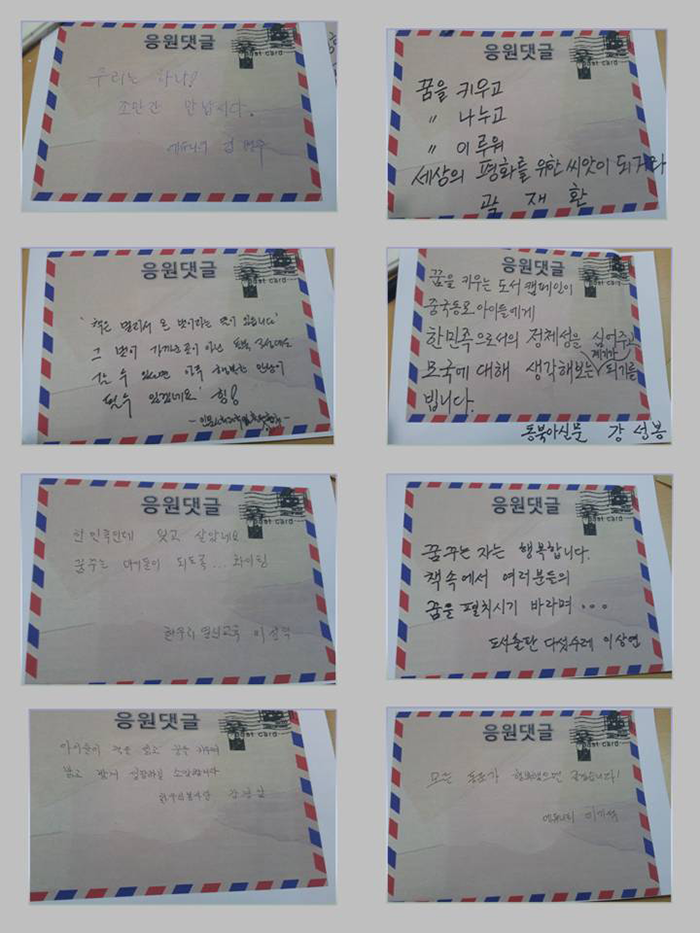 응원댓글
post card
우리는 하나!
조만간 만납시다.
김
응원댓글
post card
꿈을 키우고
〃 나누고
〃 이루워
세상의 평화를 위한 씨앗이 되거라
곽 재 환
응원댓글
post card
'책은 멀리서 온 벗이라는 말이 있습니다'
그 벗이 가까운 곳이 아닌
수 있다면 아주 행복한 인생이
될 수 있겠네요. 힘!
응원댓글
post card
꿈을 키우는 도서 캠페인이
중국동포 아이들에게
한민족으로서의 정체성을 심어주고
모국에 대해 생각해보는 계기가 되기를
빕니다.
동북아신문 강 성봉
응원댓글
post card
한민족인데 잊고 살았네요
꿈꾸는 아이들이 되도록... 화이팅
한우리열린교육
응원댓글
post card
꿈꾸는 자는 행복합니다.
책속에서 여러분들의
꿈을 펼치시기 바라며...
도서출판 다섯수레 이상연
응원댓글
post card
아이들이 책을 읽고 꿈을 키우며
응원댓글
post card
모든 동포가 행복했으면 좋겠습니다!